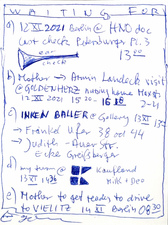 WAITING FOR
a) 12 XI 2021 Berlin @ HNO doc
ear check Petersburger Pl. 3
13 00
ear check
b) Mother → Armin Landeck visit
@ GOLDENHERZ nursing home
12 XI 2021 15 30 - 16 30
c) INKEN BALLER @ Gallery 13 XI
→ Fränkel Ufer 38 or 44
→ Judith-Auer-Str.
→ Ecke Greifsberger
d) my turn @ Kaufland
13 XI 14 30 milk + deo
e) Mother to get ready to drive
to VIELITZ 14 XI Berlin 08 30